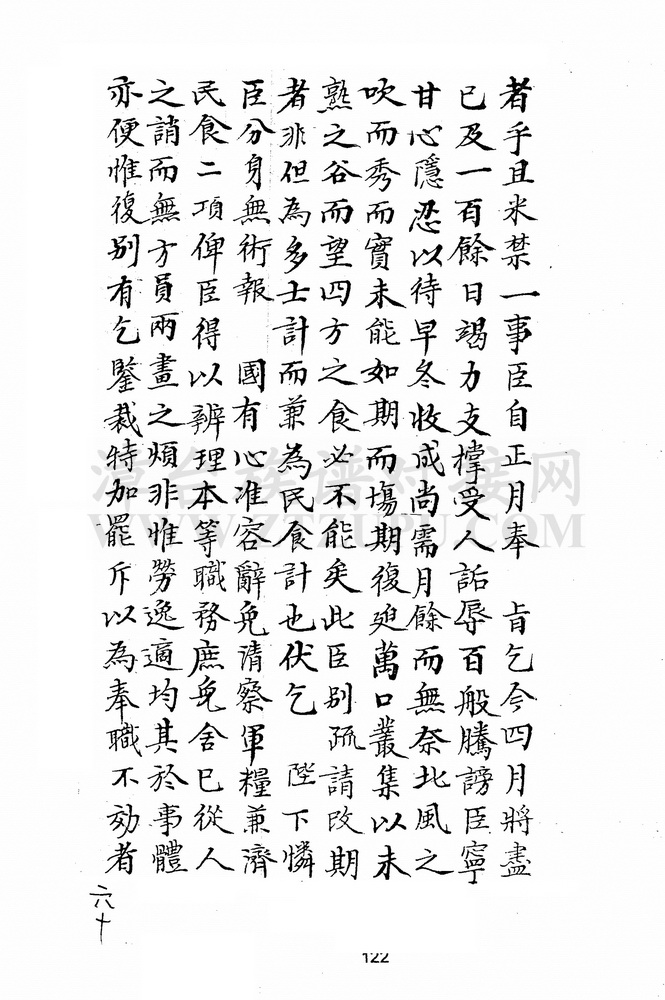 者乎且米禁一事臣自正月奉　旨乞今四月將盡
已及一百餘日竭力支撐受人詬辱百般騰謗臣寧
甘心隱忍以待早冬收成尚需月餘而無奈北風之
吹而秀而實未能如期而塲期復廹萬口叢集以未
熟之谷而望四方之食必不能矣此臣別疏請改期
者非但為多士計而兼為民食計也伏乞　陛下憐
臣分身無術報　國有心准容辭免清察軍糧兼濟
民食二項俾臣得以辨理本等職務庶免舍已從人
之誚而無方員兩畫之煩非惟勞逸適均其於事體
亦便惟復別有乞鑒裁特加罷斥以為奉職不効者
六十
122
WWW.ZTZUPU.COM